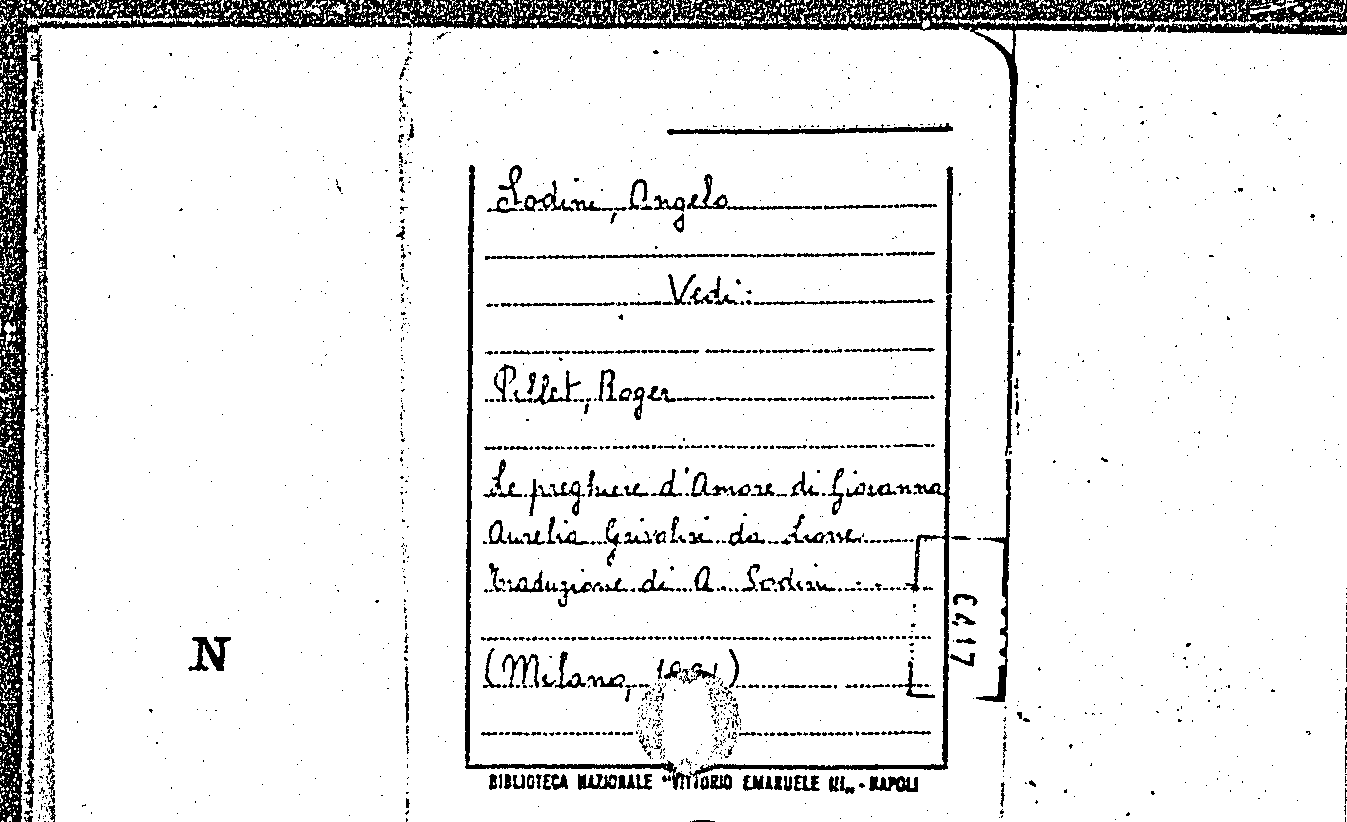 Sodini, Angelo
Vedi:
Pillet, Roger
Le preghiere d'Amore di Giovanna
Aurelia Grivolin da Lione.
Traduzione di A. Sodini
(Milano, )
N
BIBLIOTECA NAZIONALE "VITTORIO EMANUELE III„ - NAPOLI